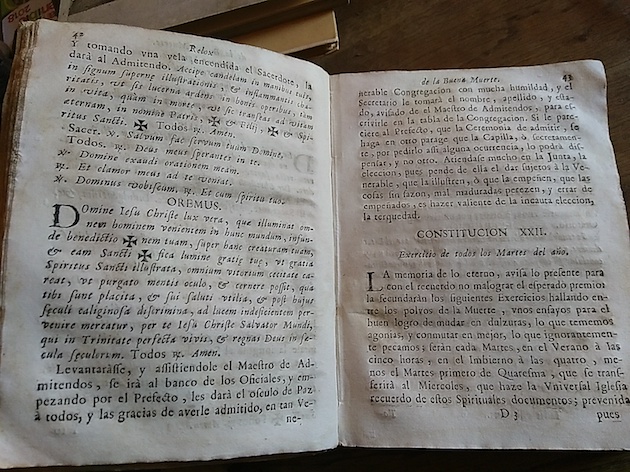 42
Relox
Y tomando vna vela encendida el Sacerdote, la
darà al Admitendo. Accipe candelam in manibus tuis,
in signum supernæ illustrationis, & inflammantis chari-
tatis, vt sis lucerna ardens in bonis operibus, tam
in vita, quàm in morte, vt sic transeas ad vitam
æternam, in nomine Patris, ✠ & Filij, ✠ & Spi-
ritus Sancti. ✠ Todos ℟. Amen.
Sacer. ℣. Salvum fac servum tuum Domine.
Todos. ℟. Deus meus sperantes in te.
℣. Domine exaudi orationem meam.
℟. Et clamor meus ad te veniat.
℣. Dominus vobiscum. ℟. Et cum spiritu tuo.
OREMUS.
Domine Iesu Christe lux vera, quæ illuminat om-
nem hominem venientem in hunc mundum, infun-
de benedictio ✠ nem tuam, super hanc creaturam tuam,
& eam Sancti ✠ fica lumine gratiæ tuæ, vt gratia
Spiritus Sancti illustrata, omnium vitiorum cæcitate ca-
reat, vt purgato mentis oculo, & cernere possit, quæ
tibi sunt placita, & suæ saluti vtilia, & post hujus
sæculi caliginosa discrimina, ad lucem indeficientem per-
venire mereatur, per te Iesu Christe Salvator Mundi,
qui in Trinitate perfecta vivis, & regnas Deus in sæ-
cula sæculorum. Todos ℟. Amen.
Levantaràsse, y assistiendole el Maestro de Ad-
mitendos, se irà al banco de los Oficiales, y em-
pezando por el Prefecto, les darà el osculo de Paz
à todos, y las gracias de averle admitido, en tan Ve-
ne-
de la Buena Muerte.
43
nerable Congregacion con mucha humildad, y el
Secretario le tomarà el nombre, apellido, y esta-
do, avisado de el Maestro de Admitendos, para es-
crivirle en la tabla de la Congregacion. Si le pare-
ciere al Prefecto, que la Ceremonia de admitir, se
haga en otro patage que la Capilla, ò secretamen-
te, por pedirlo assi alguna ocurrencia, lo podrà dis-
pensar, y no otro. Atiendase mucho en la Junta, la
eleccion, pues pende de ella el dar sujetos à la Ve-
nerable, que la illustren, ò que la empeñen, que las
cosas sin sazon, mal maduradas perezen, y errar de
empeñados, es hazer valiente de la incauta eleccion,
la terquedad.
CONSTITUCION XXII.
Exercicio de todos los Martes del año.
LA memoria de lo eterno, avisa lo presente para
con el recuerdo no malograr el esperado premio:
la secundaràn los siguientes Exercicios hallando en-
tre los polvos de la Muerte, vnos ensayos para el
buen logro de mudar en dulzuras, lo que tememos
agonias, y conmutar en mejor, lo que ignorantemen-
te pecamos; seràn cada Martes, en el Verano à las
cinco horas, en el Imbierno à las quatro, me-
nos el Martes primero de Quaresma, que se trans-
ferirà al Miercoles, que haze la Vniversal Iglesia
recuerdo de estos Spirituales documentos; prevenida
D 3
pues